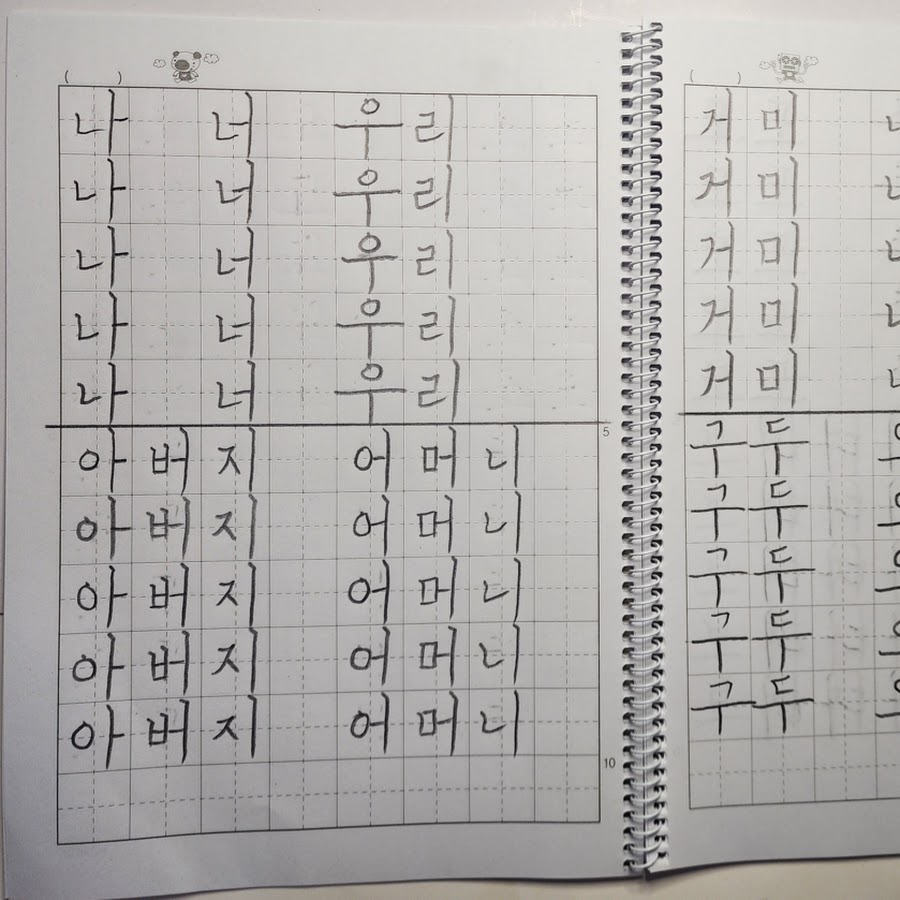 나 너 우리
나 너 우리
나 너 우리
나 너 우리
나 너 우리
아버지 어머니
아버지 어머니
아버지 어머니
아버지 어머니
아버지 어머니
5
10
거미
거미
거미
거미
거미
구두
구두
구두
구두
구두